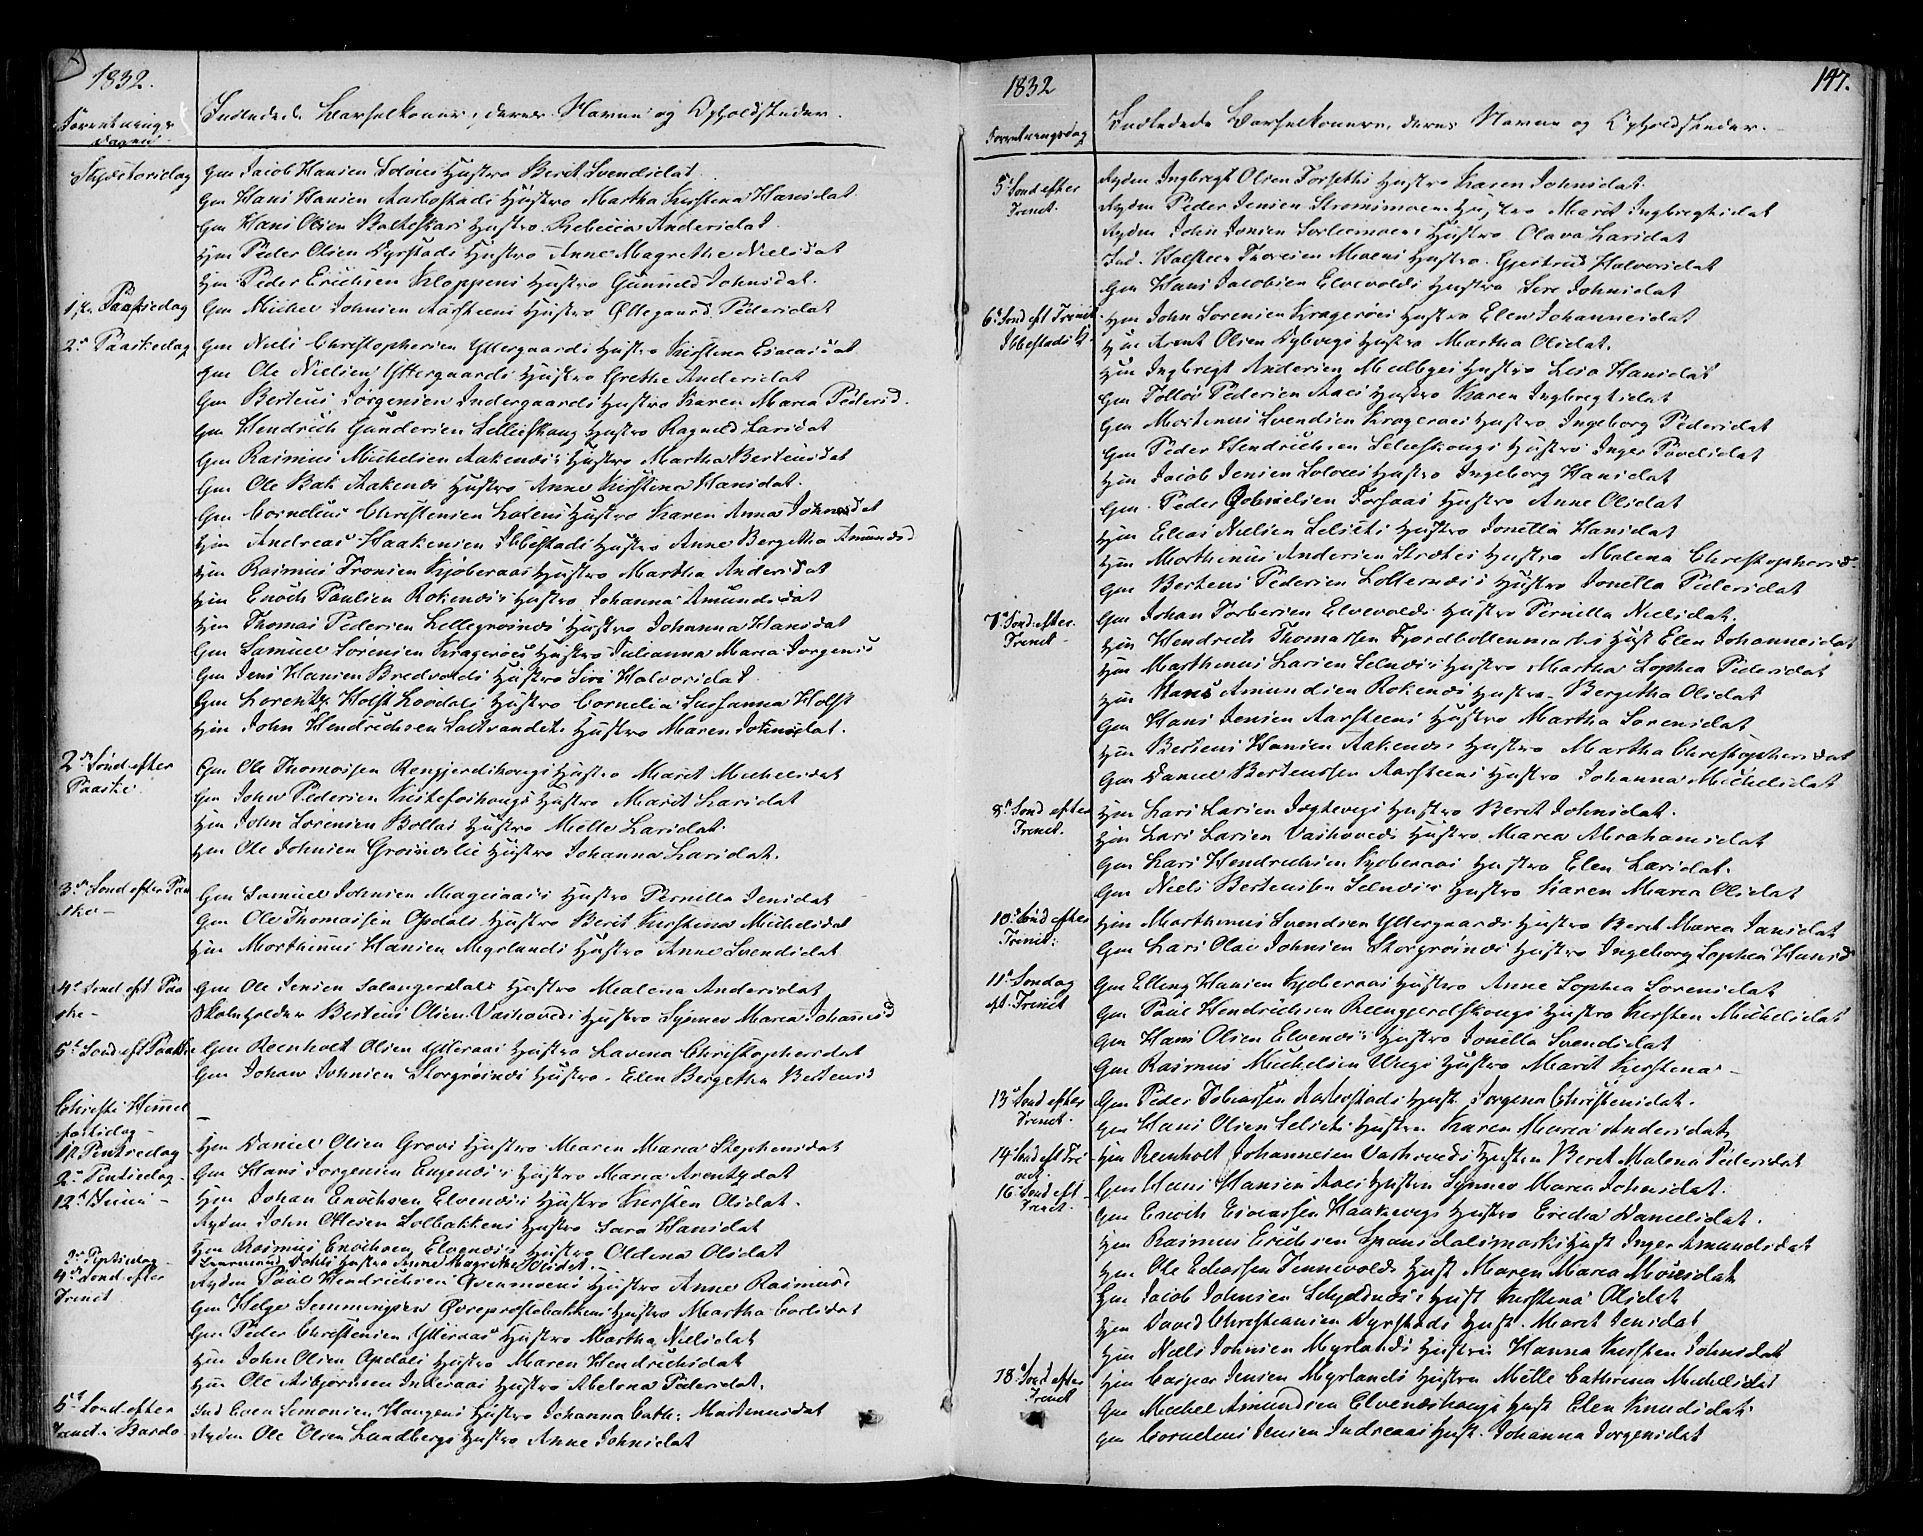 1832.
Forretnings
Dagen
Indledede Barselkoner, deres Navne og Opholdsteder.
Skjærtorsdag
Gm Jacob Hansen Hustro Berit Svendsdat.
Gm Hans Hansen Aarbostads Hustro Martha Kirstina Hansdat.
Gm Hans Olsen Hustro Rebecca Andersdat.
Hm Peder Olsen Dyrstads Hustro Anne Magrethe Nielsdat
Hm Peder Erichsen Kloppens Hustro Gunneld Johnsdat.
1ste Paaskedag
Gm Michel Johnsen Aarsteens Hustro Ollegaard Pedersdat
2d Paaskedag
Gm Niels Christophersen Yttergaards Hustro Kirstina Esaiasdat
Gm Ole Nielsen Yttergaards Hustro Grethe Andersdat
Gm Berteus Jørgensen Indergaards Hustro Karen Maria Pedersd.
Gm Hendrich Gundersen Lilleskoug Hustro Ragneld Larsdat
Gm Rasmus Michelsen Aakenæs Hustro Martha Berteusdat
Gm Ole Bak Aakenæs Hustro Anne Kirstina Hansdat.
Gm Cornelius Christensen Hustro Karen Anna Johnsdat
Hm Andreas Haakensen Ibbestads Hustro Anne Bergetha Amundsd
Hm Rasmus Tronsen Kjøberaas Hustro Martha Andersdat
Hm Enoch Paulsen Rokenæs Hustro Johanna Amundsdat
Hm Thomas Pedersen Lillegroinæs Hustro Johanna Hansdat
Gm Samuel Sørensen Kragerøes Hustro Julianna Maria Jørgensd
Gm Jens Hansen Bredvolds Hustro Siri Halvorsdat
Gm Lorentz Holst Løvdals Hustro Cornelia Susanna Holst
Hm John Hendrichsen Saltvandets Hustro Maren Johnsdat.
2den Sønd efter
Paaske
Gm Ole Thomassen Rengjerdskougs Hustro Marit Michelsdat
Gm John Pedersen Hustro Marit Larsdat
Hm John Sorensen Bollas Hustro Mille Larsdat.
Hm Ole Johnsen Hustro Johanna Larsdat.
3die Sønd efter Paa
ske –
Gm Samuel Johnsen Hustro Pernilla Jensdat
Gm Ole Thomassen Opdals Hustro Berit Kirstina Michelsdat
Hm Morthinus Hansen Myrlands Hustro Anne Svendsdat
4d Sønd eft Paa
ske –
Gm Ole Jensen Salangsdals Hustro Malena Andersdat
Skoleholder Berteus Olsen Vashoveds Hustro Synnev Maria Johansd
5t Sønd eft Paaske
Gm Reinholt Olsen Ytteraas Hustro Lavina Christophersdat
Gm Johan Johnsen Storgroinæs Hustro Elen Bergetha Berteusd
Christi Himmel
fartsdag –
1ste Pentsedag
Hm Daniel Olsen Grovs Hustro Maren Maria Stephensdat
2d Pentsedag
Gm Hans Jorgensen Engenæs Hustro Maria Arentzdat
Hm Johan Enochsen Elvenæs Hustro Kirsten Olsdat.
Aydm John Ottesen Solbakkens Hustro Sara Hansdat
Hm Rasmus Enochsen Elvenæs Hustro Oldina Olsdat
4de Sønd efter
Trinit
Aydm Paul Hendrichsen Hustro Anne Rasmusd
Gm Helge Semmingsen Øvreprestebakkens Hustro Martha Carlsdat
Gm Peder Christensen Ytteraas Hustro Martha Nielsdat
Hm John Olsen Opdals Hustro Maren Hendrichsdat
Hm Ole Asbjørnsen Inderaas Hustro Abelona Pedersdat.
5t Sønd efter
Ind Even Simonsen Haugens Hustro Johanna Cath: Martinusdat
Trinit i Bardo
Aydm Ole Olsen Lundbergs Hustro Anne Johnsdat
1832
147.
Forretningsdag
Indledede Barselkoner, deres Navne og Opholdsteder.
5t Sønd efter
Trinit.
Aydm Ingbregt Olsen Forseths Hustro Karen Johnsdat.
Aydm Peder Jensen Strømsmoens Hustro Marit Ingbregtsdat
Aydm John Jonsen Hustro Olava Larsdat
Ind. Halsteen Thoresen Moens Hustro Gjertrud Halvorsdat
Gm Hans Jacobsen Elvevolds Hustro Sire Johnsdat
6t Sønd eft Trinit
Ibbestads K
Hm John Sorensen Kragerøes Hustro Elen Johannesdat
Hm Arent Olsen Dybvigs Hustro Martha Olsdat.
Hm Ingbregt Andersen Hustro Lisa Hansdat
Gm Tollev Pedersen Aaes Hustro Karen Ingbregtsdat
Gm Mortinus Svendsen Kragerøes Hustro Ingeborg Pedersdat
Gm Peder Hendrichsen Lilleskougs Hustro Inger Povelsdat
Hm Jacob Jensen Hustro Ingeborg Hansdat
Gm Peder Forsaas Hustro Anne Olsdat
Hm Elias Nielsen Selsets Hustro Jonetta Hansdat
Hm Morthinus Andersen Hustro Malena Christophersd.
Gm Berteus Pedersen Hustro Jonetta Pedersdat
7t Sønd. efter
Trinit –
Gm Johan Torbersen Elvevolds Hustro Pernilla Nielsdat.
Hm Hendrich Thomassen Fjordbottenmarks Hust Elen Johannesdat
Hm Marthinus Larsen Selnæs Hustro Martha Sophia Pedersdat
Hm Hans Amundsen Rokenæs Hustro Bergetha Olsdat
Gm Hans Jensen Aarsteens Hustro Martha Sorensdat
Hm Berteus Hansen Aakenæs Hustro Martha Christophersdat
Gm Daniel Berteussen Aarsteens Hustro Johanna Michelsdat
8t Sønd efter
Trinit.
Hm Lars Larsen Hustro Berit Johnsdat.
Hm Lars Larsen Vashoveds Hustro Maria Abrahamsdat
Gm Lars Hendrichsen Kjøberaas Hustro Elen Larsdat.
Gm Niels Berteussen Selnæs Hustro Karen Maria Olsdat
10d Sønd efter
Trinit:
Hm Marthinus Svendsen Yttergaards Hustro Berit Maria Jansdat
Gm Lars Olai Johnsen Storgroinæs Hustro Ingeborg Sophia Hansd
11t Søndag
eft. Trinit
Gm Elling Hansen Kjøberaas Hustro Anne Sophia Sorensdat
Gm Paul Hendrichsen Rengjerdskougs Hustro Kirsten Michelsdat
Gm Hans Olsen Elvenæs Hustro Jonetta Svendsdat
Gm Rasmus Michelsen Hustro Marit Kirstina –
13d Sønd efter
Trinit.
Gm Peder Tobiassen Aarbostads Hust. Jorgina Christensdat.
Gm Hans Olsen Selsets Hustro Karen Maria Andersdat
14d Sønd eft Tri
nit.
Hm Reinholt Johannesen Vashoveds Hustro Berit Malena Pedersdat
16d Sønd eft
Trinit.
Gm Hans Hansen Aaes Hustro Synnev Maria Johnsdat.
Gm Enoch Esaiassen Haukevigs Hustro Danielsdat.
Hm Rasmus Erichsen Spansdalsmarks Hust Inger Amundsdat
Hm Ole Eliassen Tennevolds Hust Maren Maria
Hm Jacob Johnsen Hust Kirstina Olsdat
Hm David Christiansen Dyrstads Hust. Marit Jensdat
Hm Niels Johnsen Myrlands Hustro Hanna Kirsten Johnsdat
18d Sønd efter
Trinit
Hm Caspar Jensen Myrlands Hustro Mille Cathrina Michelsdat
Gm Michel Amundsen Elvenæshougs Hust Elen Knudsdat.
Gm Cornelius Jensen Inderaas Hust. Johanna Jorgensdat